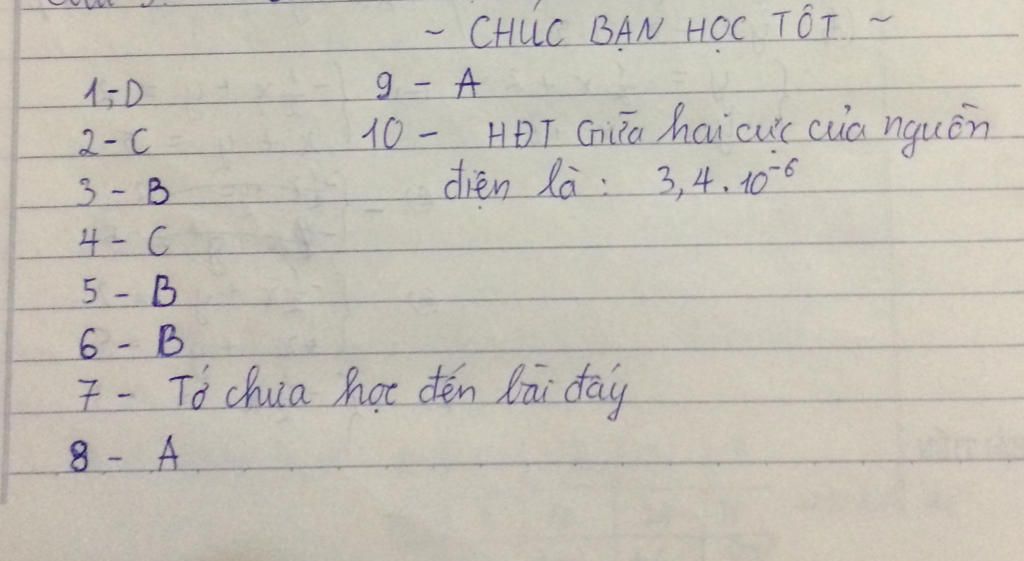 ~ CHÚC BẠN HỌC TỐT ~
1, - D
2 - C
3 - B
4 - C
5 - B
6 - B
7 - Tớ chưa học đến bài đấy
8 - A
9 - A
10 - HĐT Giữa hai cực của nguồn
điện là : 3,4 . 10⁻⁶